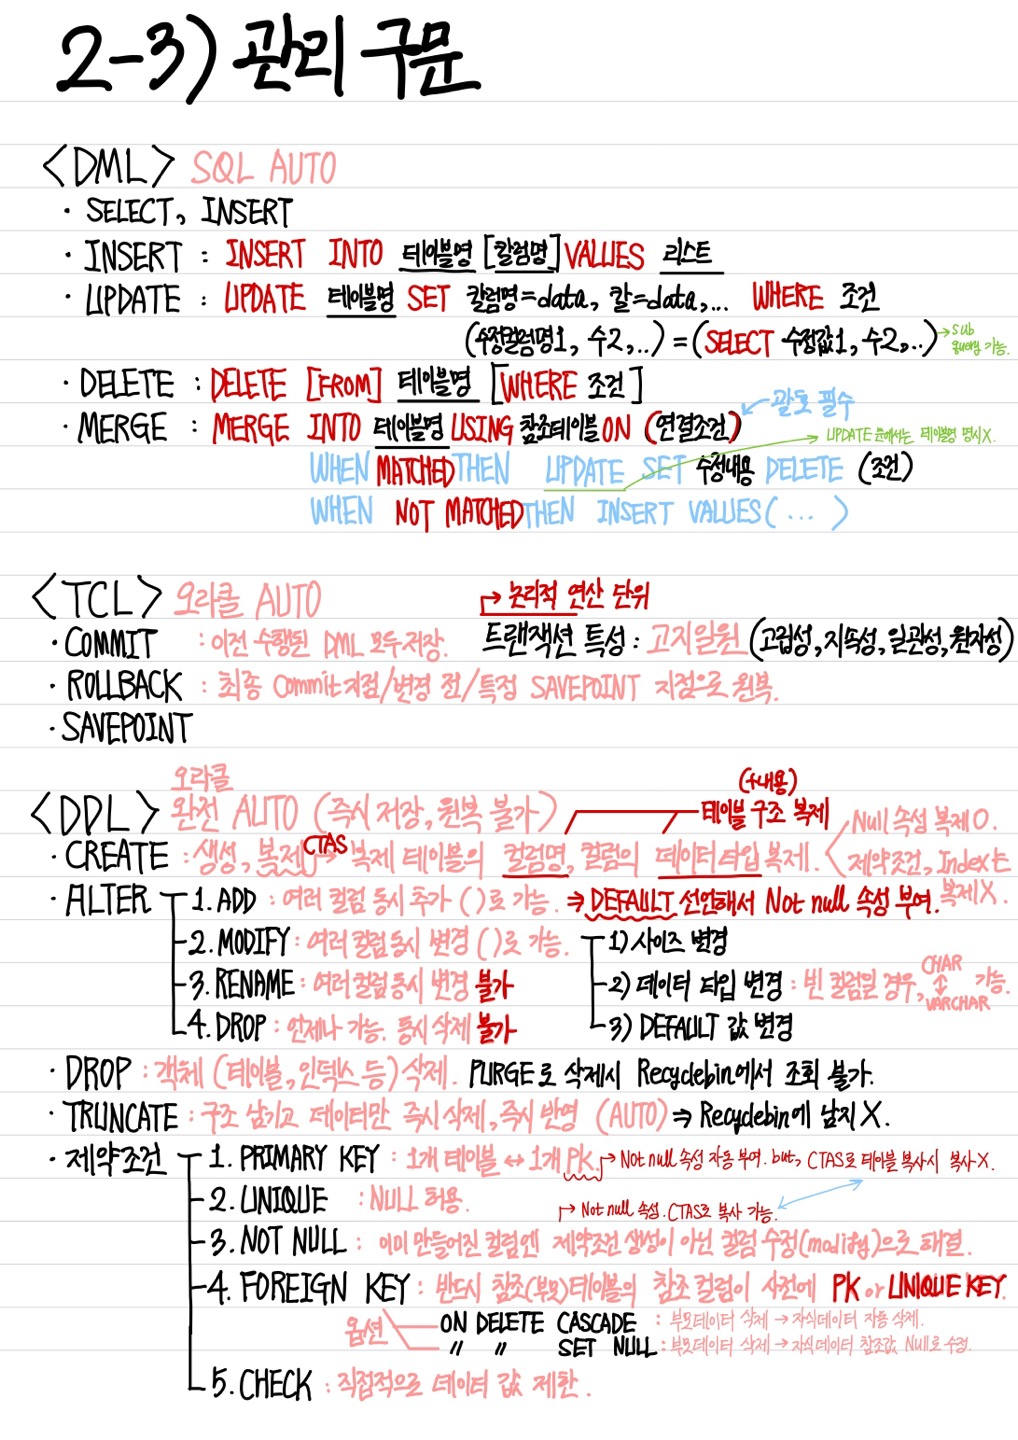 2-3) 관리 구문
<DML> SQL AUTO
· SELECT, INSERT
· INSERT : INSERT INTO 테이블명 [칼럼명] VALUES 리스트
· UPDATE : UPDATE 테이블명 SET 칼럼명=data, 칼=data,... WHERE 조건
(수정칼럼명1, 수2,..) = (SELECT 수정값1, 수2,..) → sub query 가능.
· DELETE : DELETE [FROM] 테이블명 [WHERE 조건]
괄호 필수
· MERGE : MERGE INTO 테이블명 USING 참조테이블 ON (연결조건)
UPDATE 문에서는 테이블명 명시X.
WHEN MATCHED THEN UPDATE SET 수정내용 DELETE (조건)
WHEN NOT MATCHED THEN INSERT VALUES( ... )
<TCL> 오라클 AUTO
→ 논리적 연산 단위
· COMMIT : 이전 수행된 DML 모두 저장. 트랜잭션 특성 : 고지일원 (고립성, 지속성, 일관성, 원자성)
· ROLLBACK : 최종 Commit 지점/변경 전/특정 SAVEPOINT 지점으로 원복.
· SAVEPOINT
오라클
<DDL> 완전 AUTO (즉시 저장, 원복 불가)
(+내용)
테이블 구조 복제
· CREATE : 생성, 복제 CTAS → 복제 테이블의 컬럼명, 컬럼의 데이터타입 복제.
Null 속성 복제 O.
제약조건, Index는 복제X.
· ALTER
1. ADD : 여러 컬럼 동시 추가 ( )로 가능. ⇒ DEFAULT 선언해서 Not null 속성 부여.
2. MODIFY : 여러 컬럼 동시 변경 ( )로 가능.
1) 사이즈 변경
2) 데이터 타입 변경 : 빈 컬럼일 경우, CHAR ↕ VARCHAR 가능.
3) DEFAULT 값 변경
3. RENAME : 여러 컬럼 동시 변경 불가
4. DROP : 언제나 가능. 동시 삭제 불가
· DROP : 객체 (테이블, 인덱스 등) 삭제. PURGE로 삭제시 Recyclebin에서 조회 불가.
· TRUNCATE : 구조 남기고 데이터만 즉시 삭제, 즉시 반영 (AUTO) ⇒ Recyclebin에 남지 X.
· 제약조건
1. PRIMARY KEY : 1개 테이블 ↔ 1개 PK. → Not null 속성 자동 부여. but, CTAS로 테이블 복사시 복사X.
2. UNIQUE : NULL 허용.
→ Not null 속성. CTAS로 복사 가능.
3. NOT NULL : 이미 만들어진 컬럼엔 제약조건 생성이 아닌 컬럼 수정(modify)으로 해결.
4. FOREIGN KEY : 반드시 참조(부모)테이블의 참조 컬럼이 사전에 PK or UNIQUE KEY.
옵션
ON DELETE CASCADE : 부모데이터 삭제 → 자식데이터 자동 삭제.
〃 〃 SET NULL : 부모데이터 삭제 → 자식데이터 참조값 Null로 수정.
5. CHECK : 직접적으로 데이터 값 제한.